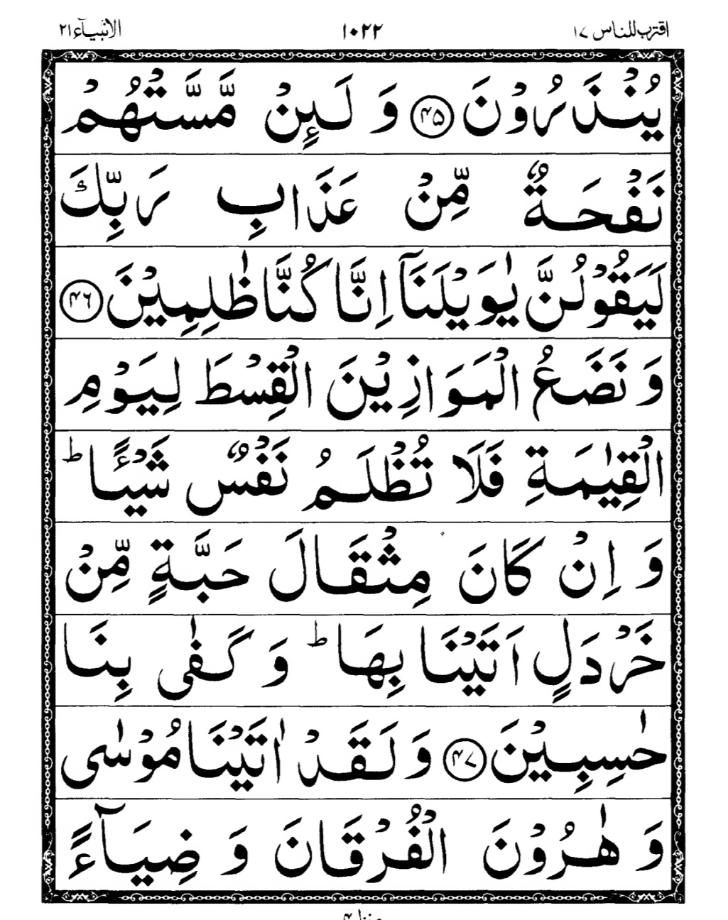 اقترب للناس ١٧ ١٠٢٢ الانبیآء ٢١
يُنْذَرُوْنَ ﴿۴۵﴾ وَ لَىِٕنْ مَّسَّتْهُمْ
نَفْحَةٌ مِّنْ عَذَابِ رَبِّكَ
لَيَقُوْلُنَّ يٰوَيْلَنَاۤ اِنَّا كُنَّا ظٰلِمِيْنَ ﴿۴۶﴾
وَ نَضَعُ الْمَوَازِيْنَ الْقِسْطَ لِيَوْمِ
الْقِيٰمَةِ فَلَا تُظْلَمُ نَفْسٌ شَيْـًٔا ؕ
وَ اِنْ كَانَ مِثْقَالَ حَبَّةٍ مِّنْ
خَرْدَلٍ اَتَيْنَا بِهَا ؕ وَ كَفٰى بِنَا
حٰسِبِيْنَ ﴿۴۷﴾ وَ لَقَدْ اٰتَيْنَا مُوْسٰى
وَ هٰرُوْنَ الْفُرْقَانَ وَ ضِيَآءً